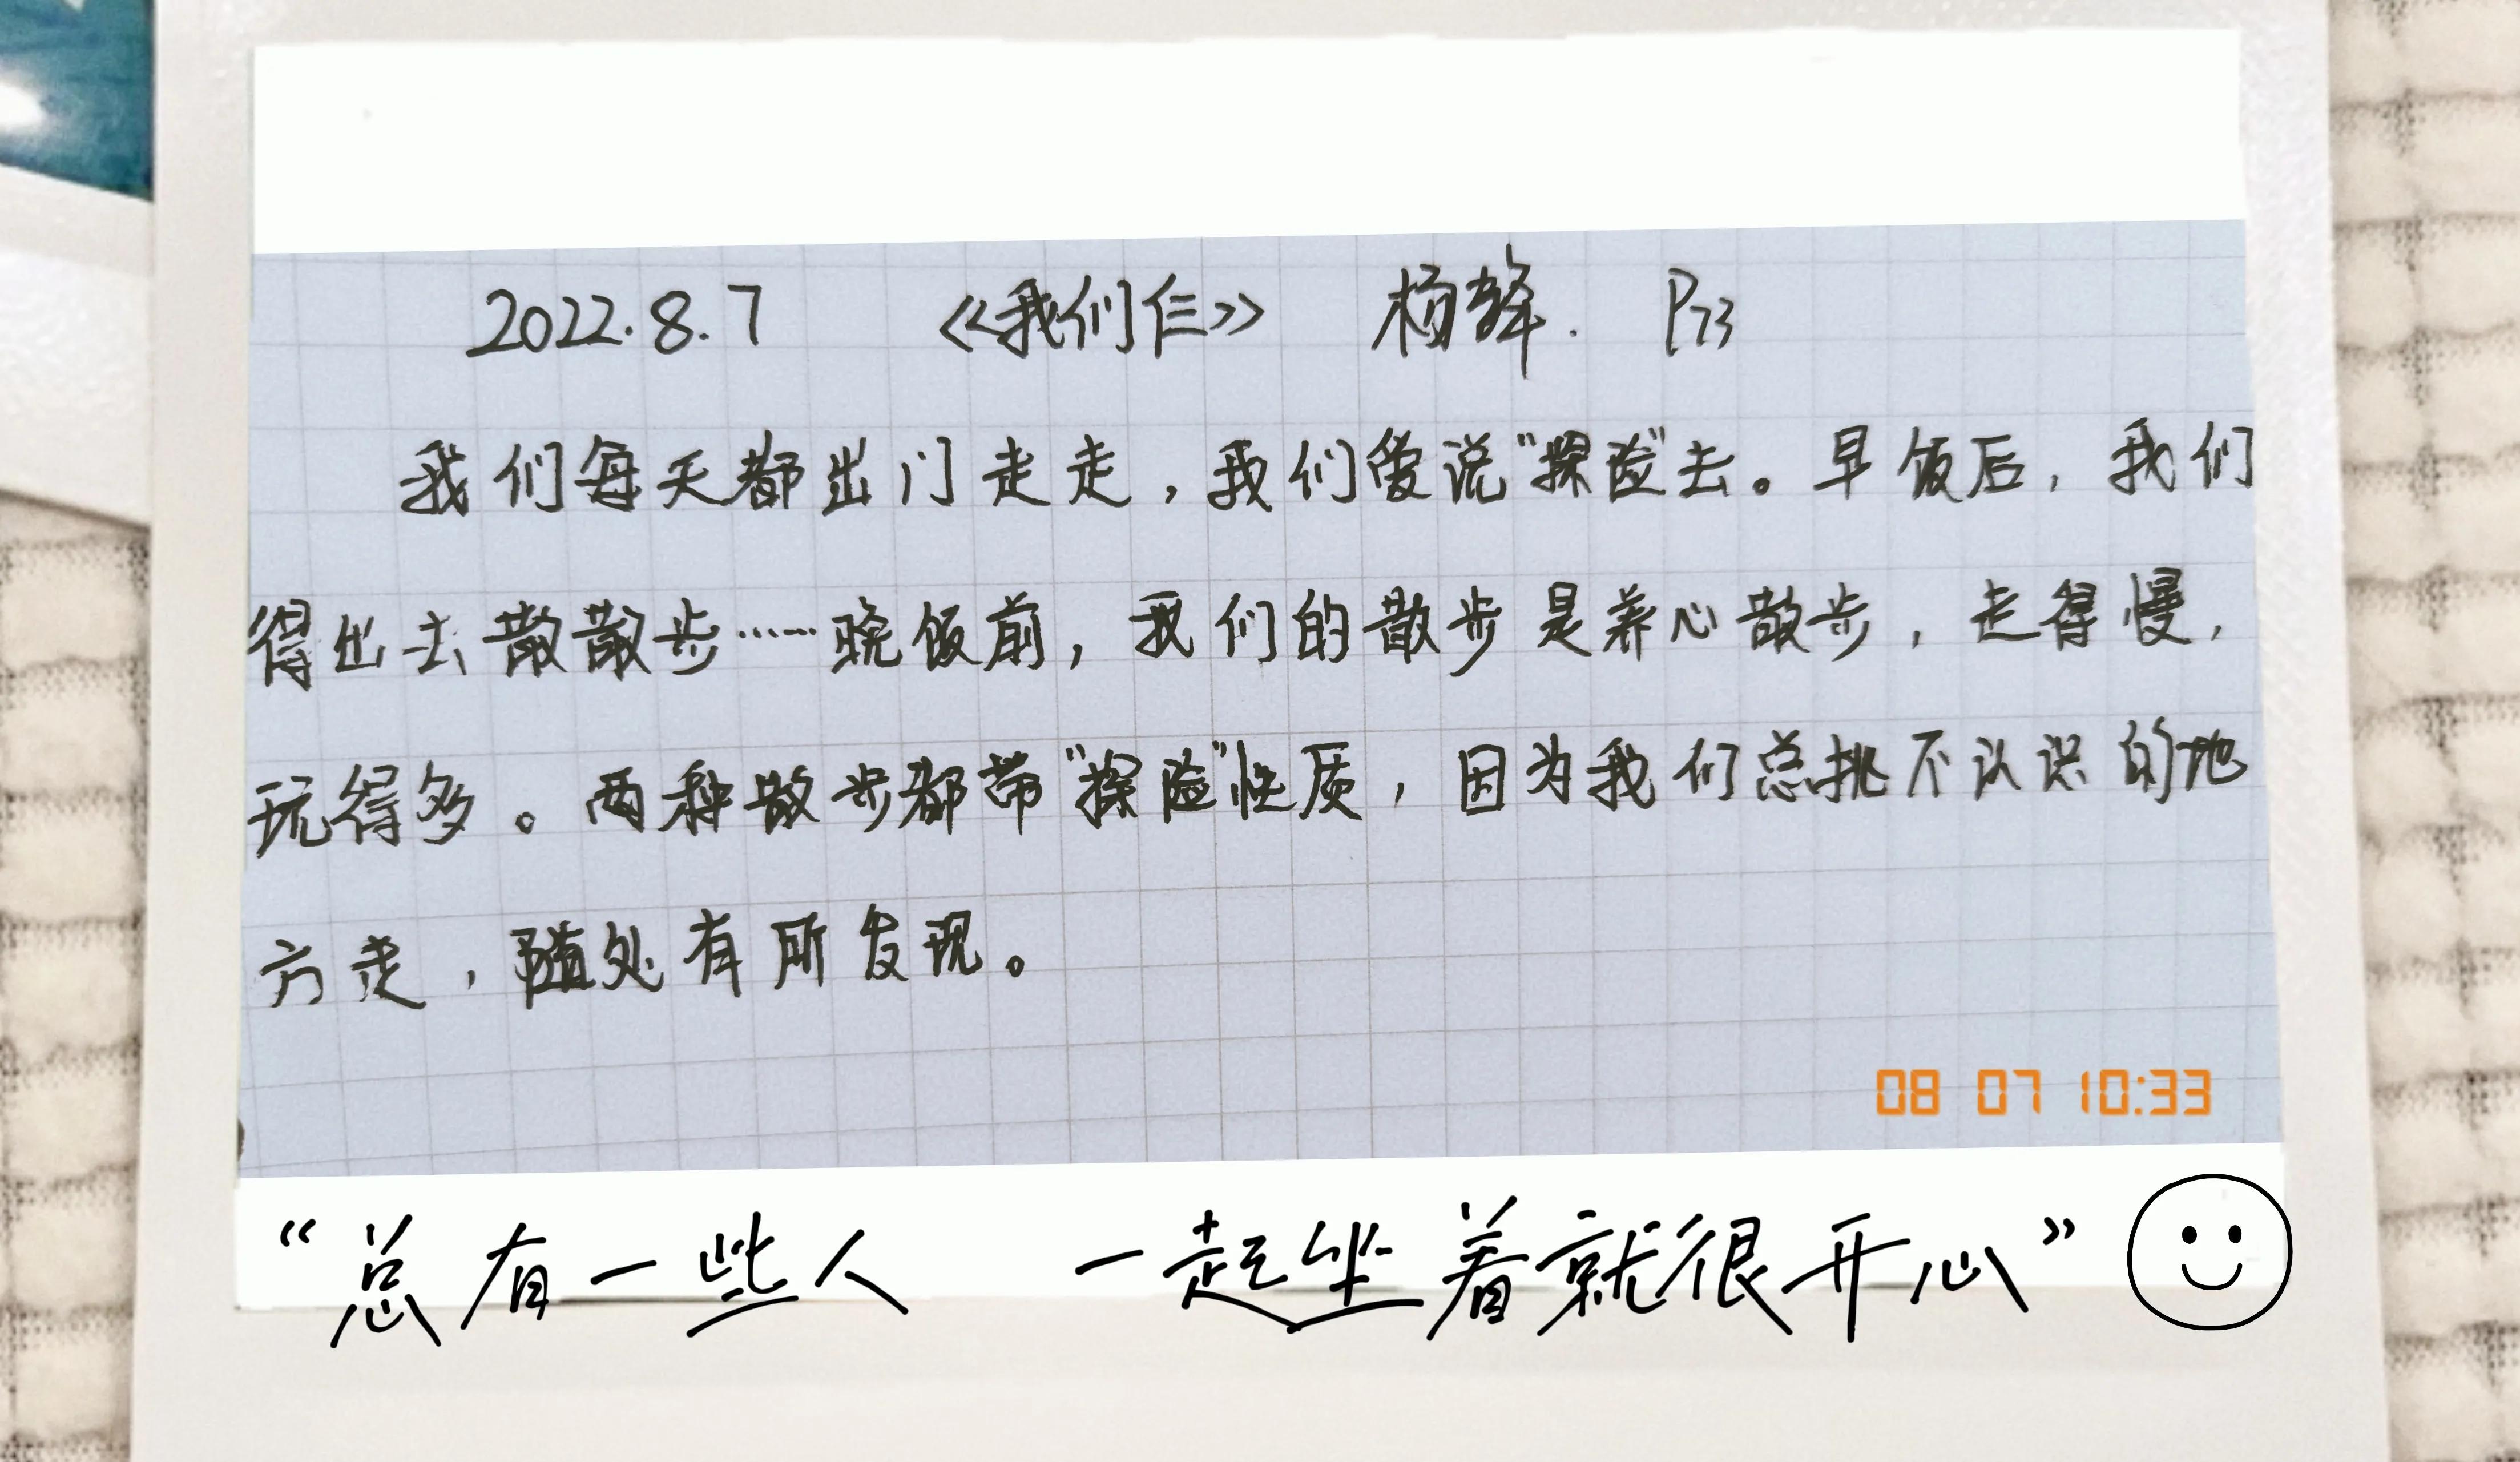 2022.8.7 《我们仨》 杨绛. P73
我们每天都出门走走，我们爱说“探险”去。早饭后，我们
得出去散散步……晚饭前，我们的散步是养心散步，走得慢，
玩得多。两种散步都带“探险”性质，因为我们总挑不认识的地
方走，随处有所发现。
08 07 10:33
“总有一些人 一起坐着就很开心”